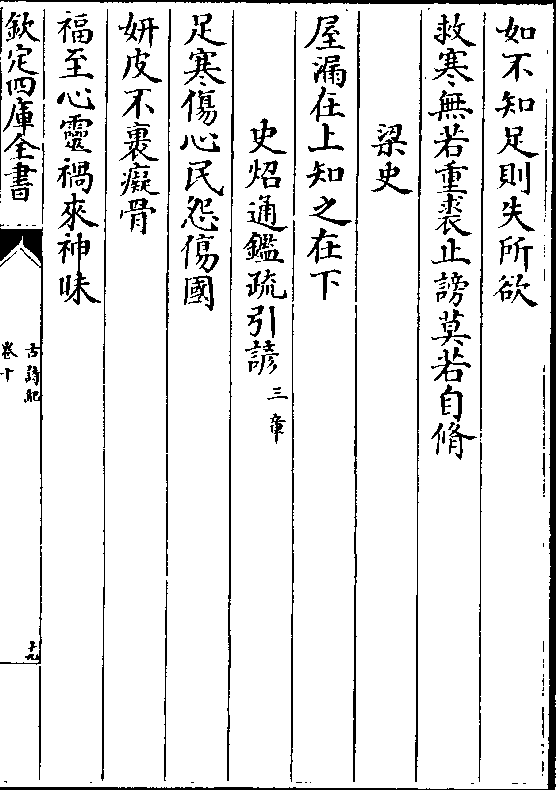 如不知足則失所欲
救寒無若重裘止謗莫若自脩
梁史
屋漏在上知之在下
史炤通鑑疏引諺三章
足寒傷心民怨傷國
妍皮不裹癡骨
福至心靈禍來神昧
欽定四庫全書
古詩紀
卷十
十九